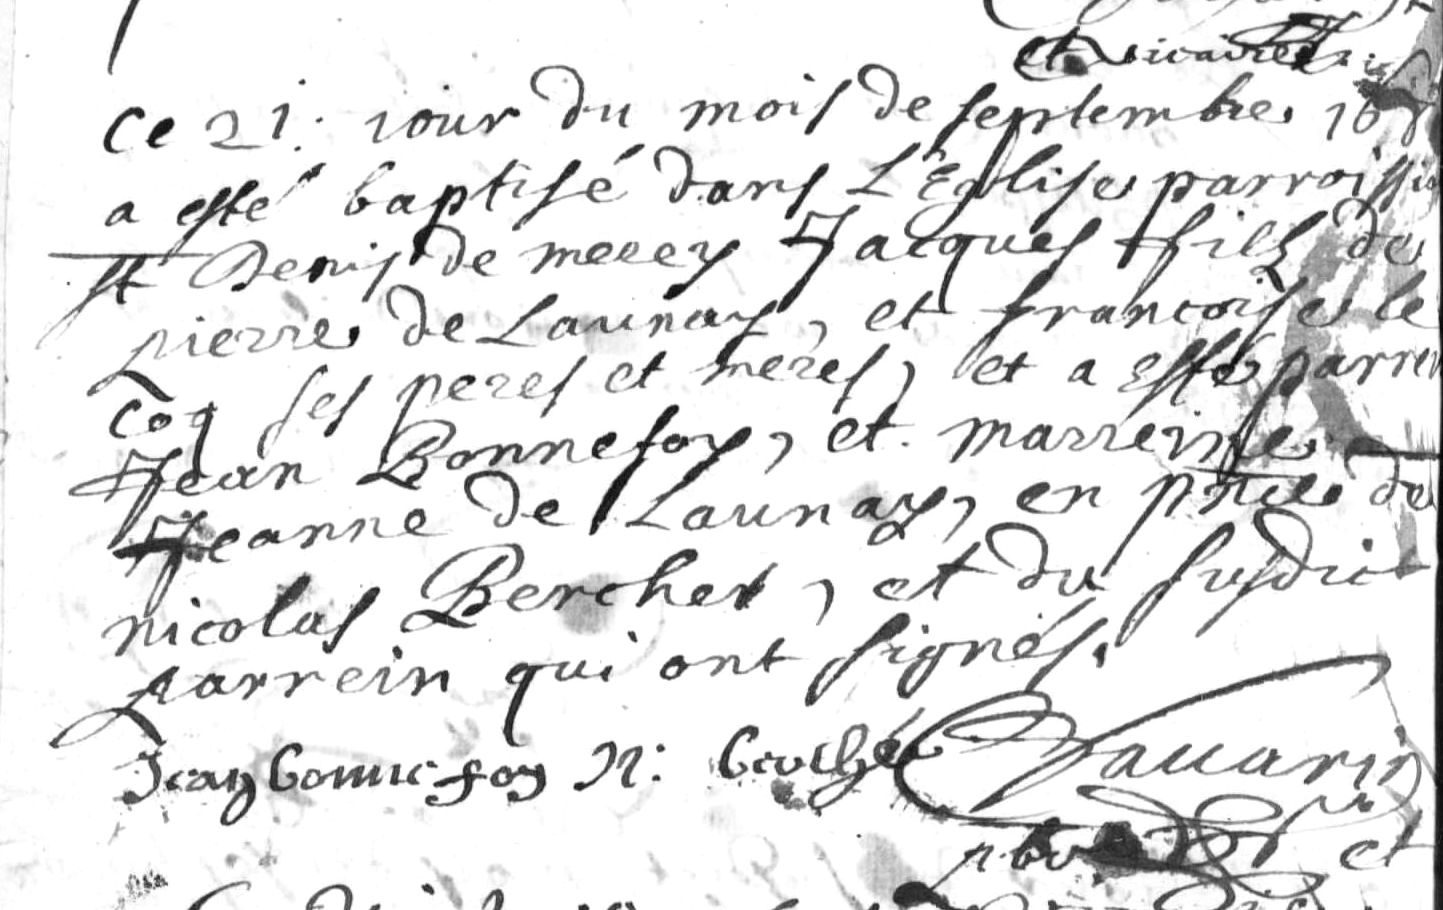 et vicaire
Ce 21. iour du mois de septembre 16
a esté baptisé dans L'Eglise parroissi
st Denis de merey Jacques filz de
pierre de Launay, et francoise le
coq ses peres et meres, et a esté parrei
Jean Bonnefoy, et marreine
Jeanne de Launay, en pnce de
nicolas Bercher, et du susdict
parrein qui ont signés.
Jean bonnefoy N: berché
pbre et